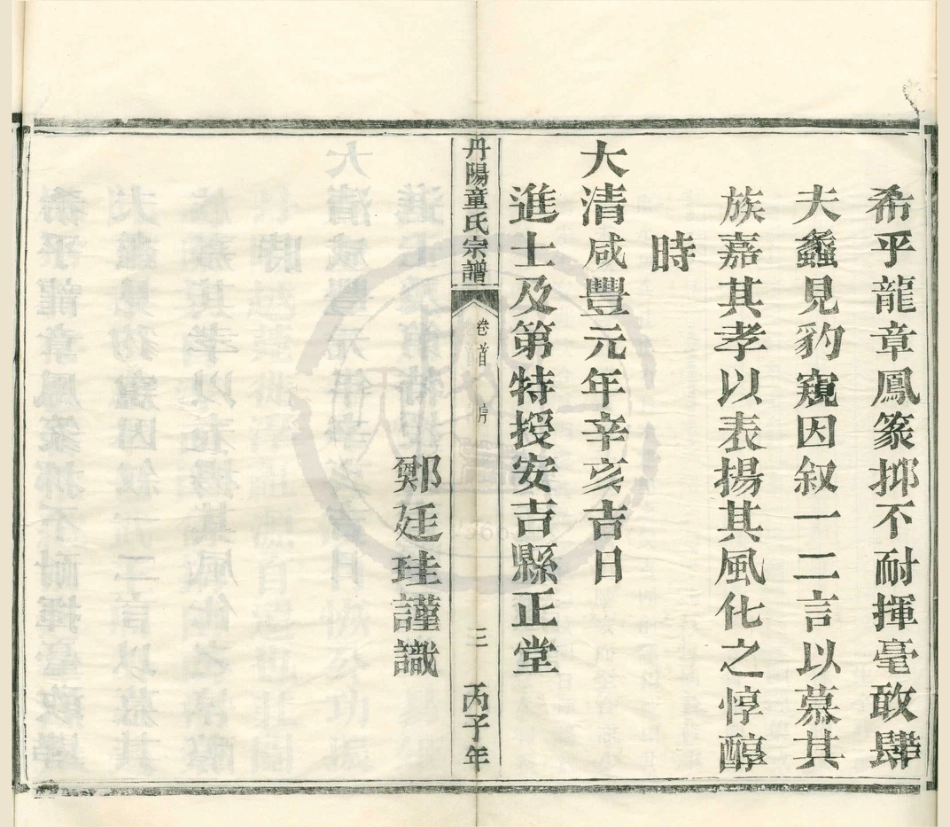 希乎龍章鳳篆抑不耐揮毫敢肆
夫蠡見豹窺因叙一二言以慕其
族嘉其孝以表揚其風化之惇醇
時
大清咸豐元年辛亥吉日
進士及第特授安吉縣正堂
丹陽童氏宗譜
卷首
三
丙子年
鄭廷珪謹識